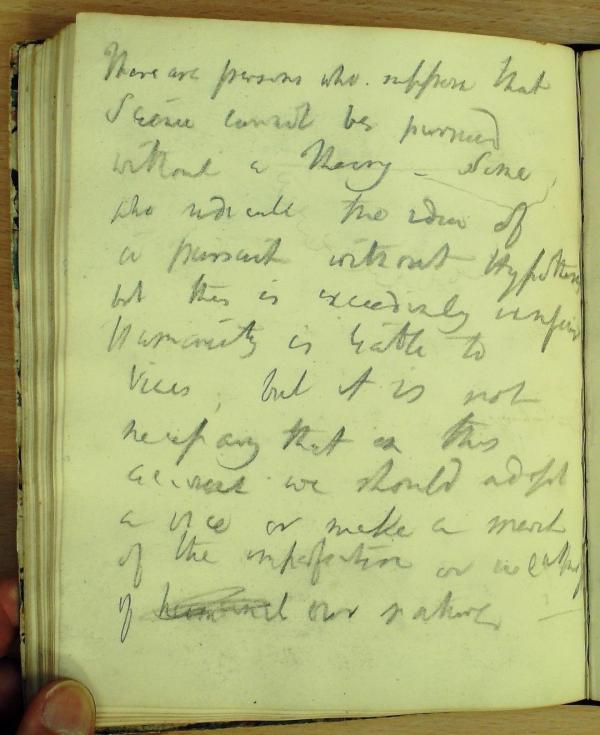 There are persons who suppose that
Science cannot be pursued
without a Theory - Some
who ridicule the idea of
a pursuit without Hypothesis
but this is exceedingly
Humanity is liable to
Vices, but it is not
necessary that on this
account we should adopt
a vice or make a merit
of the imperfection or
of our nature